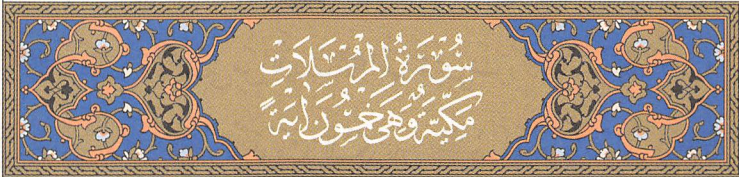 سُورَةُ المُرْسَلَاتِ
مَكِّيَّةٌ وَهِيَ خَمْسُونَ آيَةً